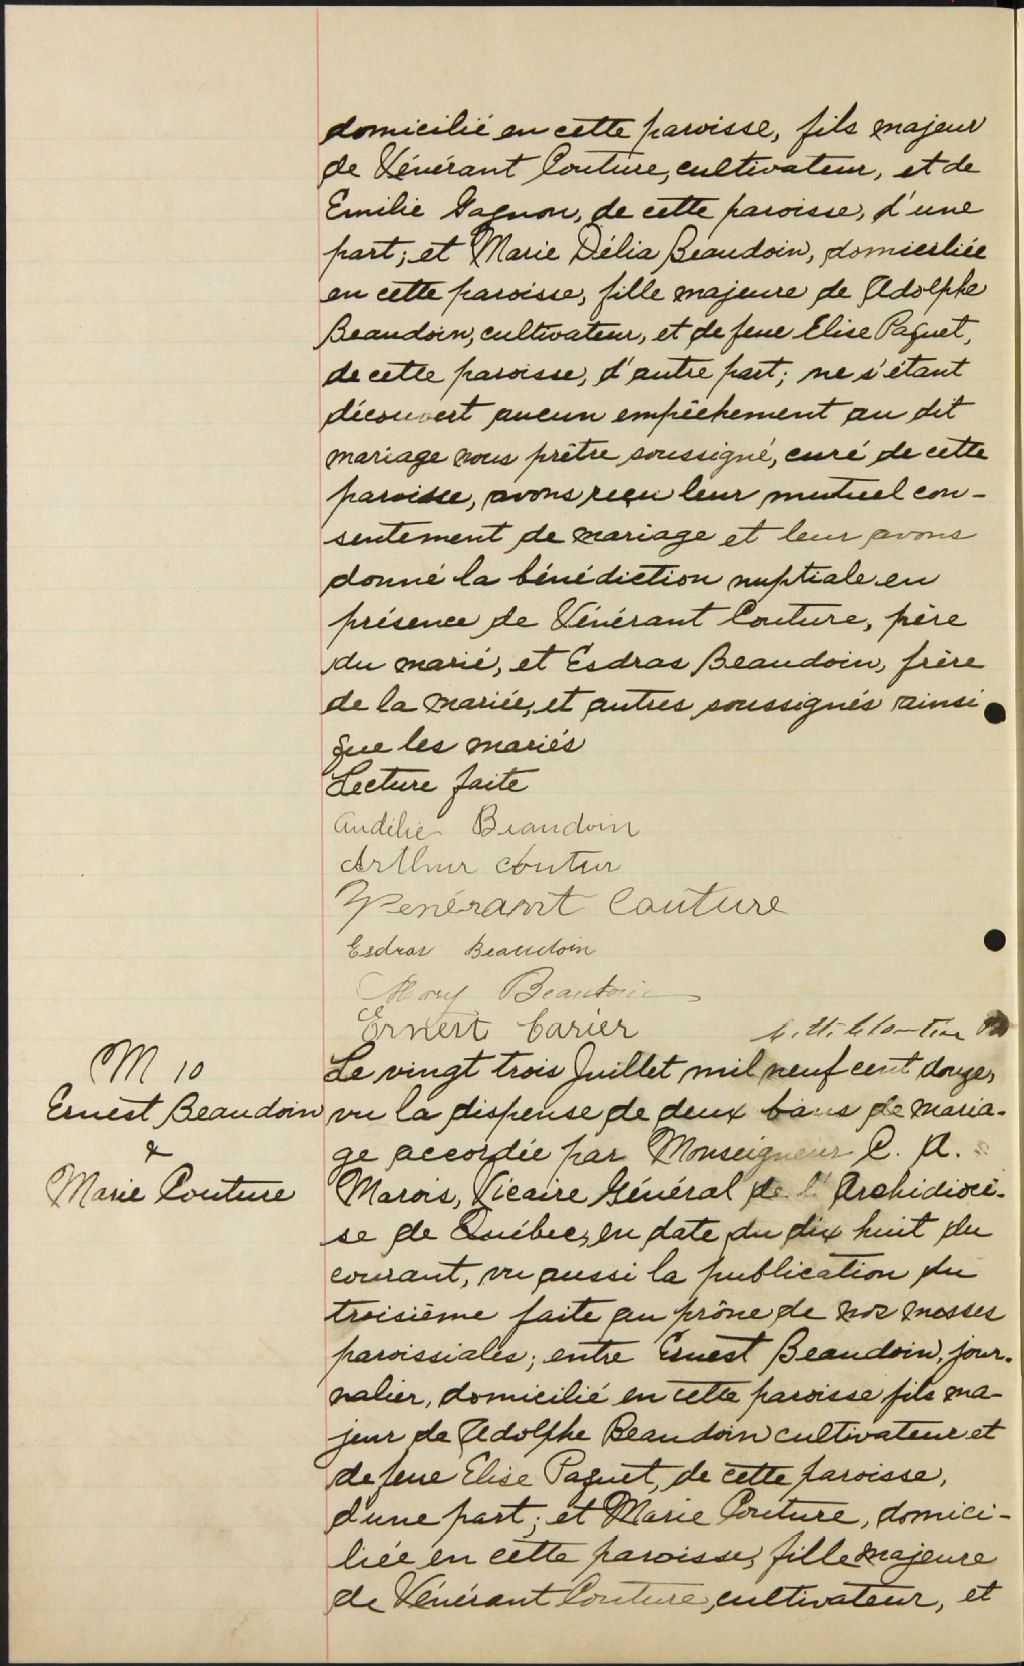 domicilié en cette paroisse, fils majeur
de Vénérant Couture, cultivateur, et de
Emilie Gagnon, de cette paroisse, d'une
part; et Marie Délia Beaudoin, domiciliée
en cette paroisse, fille majeure de Adolphe
Beaudoin, cultivateur, et de feue Elise Paquet,
de cette paroisse, d'autre part; ne s'étant
découvert aucun empêchement au dit
mariage nous prêtre soussigné, curé de cette
paroisse, avons reçu leur mutuel con-
sentement de mariage et leur avons
donné la bénédiction nuptiale en
présence de Vénérant Couture, père
du marié, et Esdras Beaudoin, frère
de la mariée, et autres soussignés ainsi
que les mariés
Lecture faite
Beaudoin
Arthur Coutur
Venérant Couture
Esdras Beaudoin
Mary Beaudoin
Ernest Carier
M 10
Ernest Beaudoin
&
Marie Couture
Le vingt trois Juillet mil neuf cent douze,
vu la dispense de deux bans de maria-
ge accordée par Monseigneur C. A.
Marois, Vicaire Général de l'Archidiocè-
se de Québec, en date du dix huit du
courant, vu aussi la publication du
troisième faite au prône de nos messes
paroissiales; entre Ernest Beaudoin, jour-
nalier, domicilié en cette paroisse fils ma-
jeur de Adolphe Beaudoin cultivateur et
de feue Elise Paquet, de cette paroisse,
d'une part; et Marie Couture, domici-
liée en cette paroisse, fille majeure
de Vénérant Couture, cultivateur, et